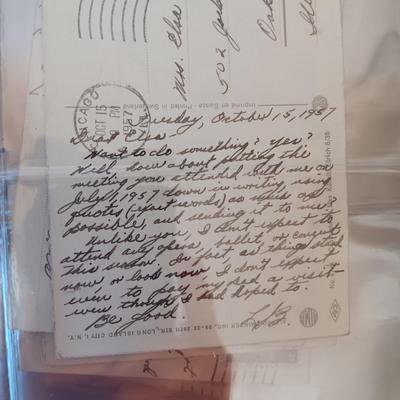 Mrs. Elsa
502
Oak
CHICAGO
OCT 15
PM
1957
ILL
Imprimé en Suisse - Printed in Switzerland
Tuesday, October 15, 1957
Dear Elsa
Want to do something? Yes?
Well how about putting the
meeting you attended with me on
July, 1957 down in writing using
quotes (exact words) as much as
possible, and sending it to me.
Unlike you, I don't expect to
attend any opera, ballet, or concert
this season. In fact, as things stand
now or look now, I don't expect
even to pay my dad a visit
even though I had hoped to.
Be good.
29-22 28TH STR., LONG ISLAND CITY 1, N.Y.